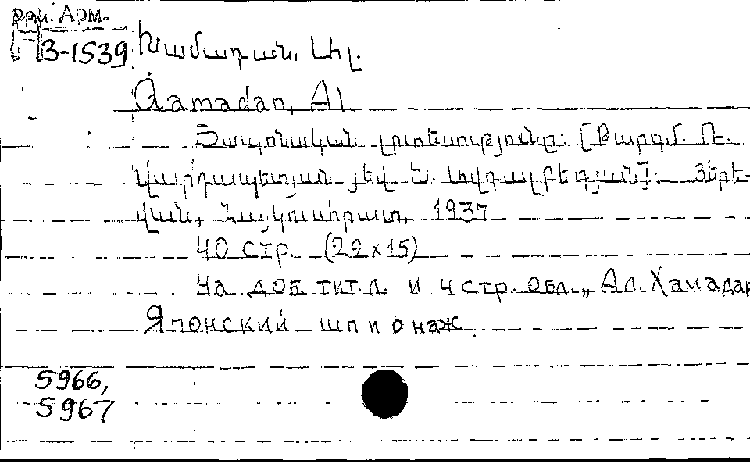 Арм.
3-1539 Խամադան, Ալ.
Xamadan, Al.
Ճապոնական լրտեսությունը: [Թարգմ. Ռ.
Վարդապետյան յեվ Ե.
վան, Հայկուսհրատ, 1937
40 стр. (22x15)
На доб. тит. л. и 4 стр. обл., Ал. Хамадан
Японский шпионаж.
5966,
5967